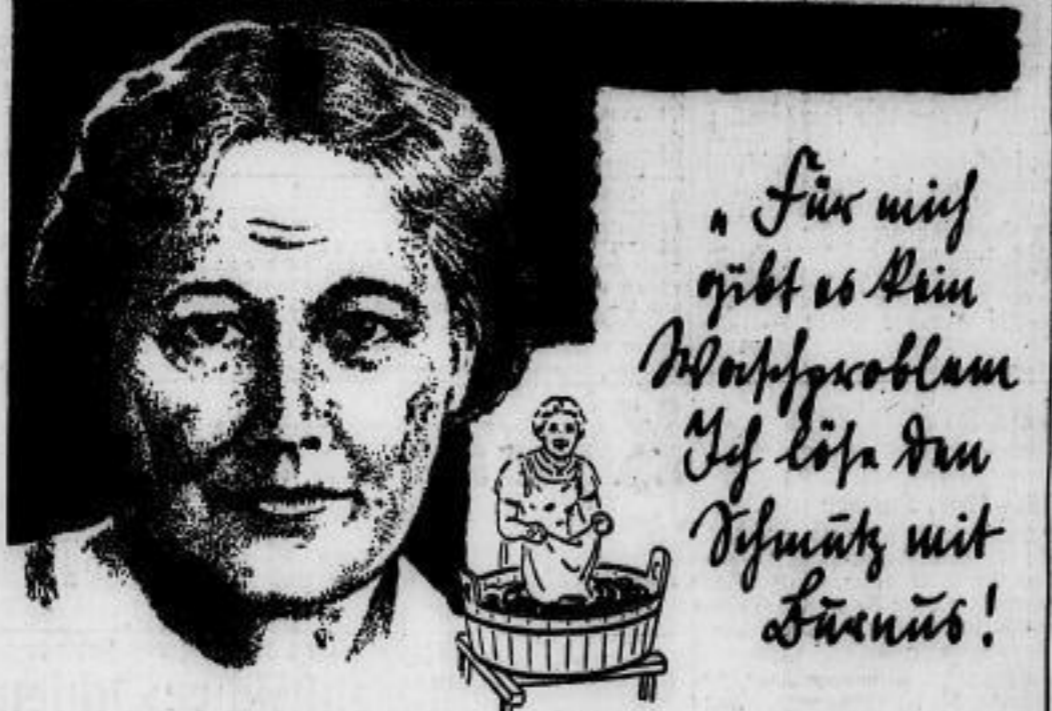 „Für mich
gibt es kein
Waschproblem
Ich löse den
Schmutz mit
Burnus!